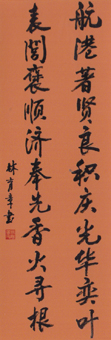 航港著贤良积庆光华奕叶
表闾褒顺济奉先香火寻根
林肖章书